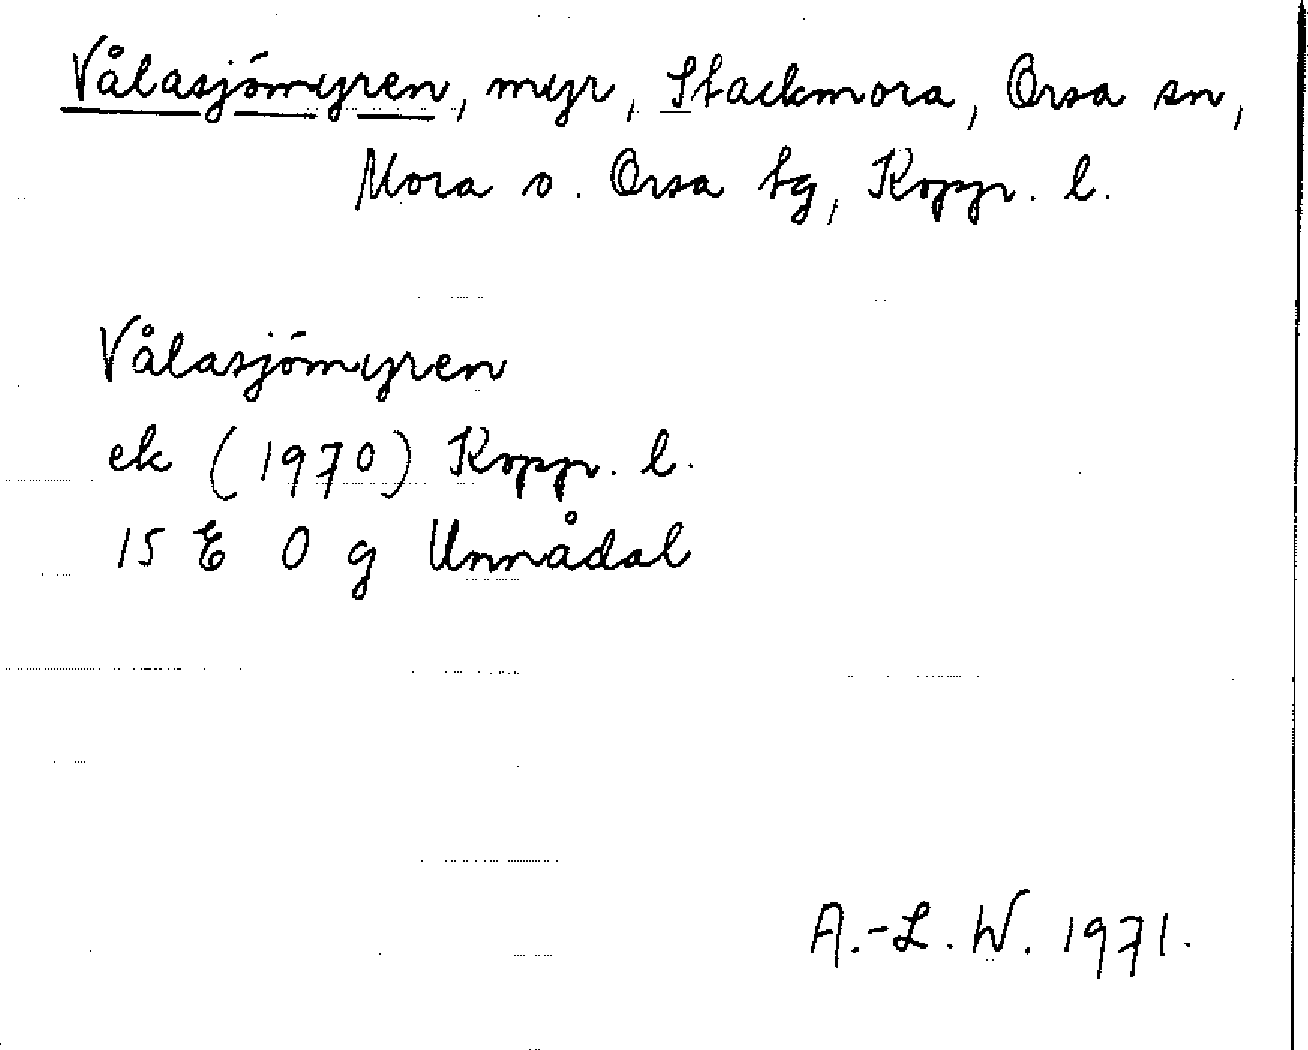 Vålasjömyren, myr, Stackmora, Orsa sn,
Mora o. Orsa tg, Kopp. l.
Vålasjömyren
ek (1970) Kopp. l.
15 E 0 g Unnådal
A.-L. W. 1971.